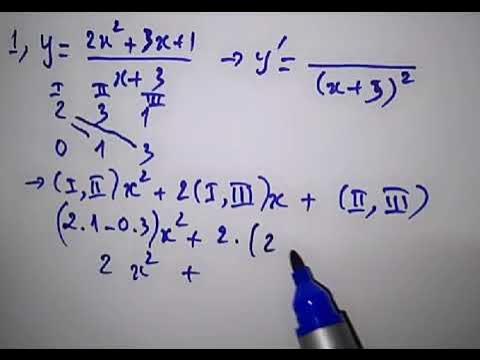 1, y = (2x² + 3x + 1) / (x + 3) → y' = / (x + 3)²
I II III
2 3 1
0 1 3
→ (I, II)x² + 2(I, III)x + (II, III)
(2.1 - 0.3)x² + 2 · (2
2 x² +